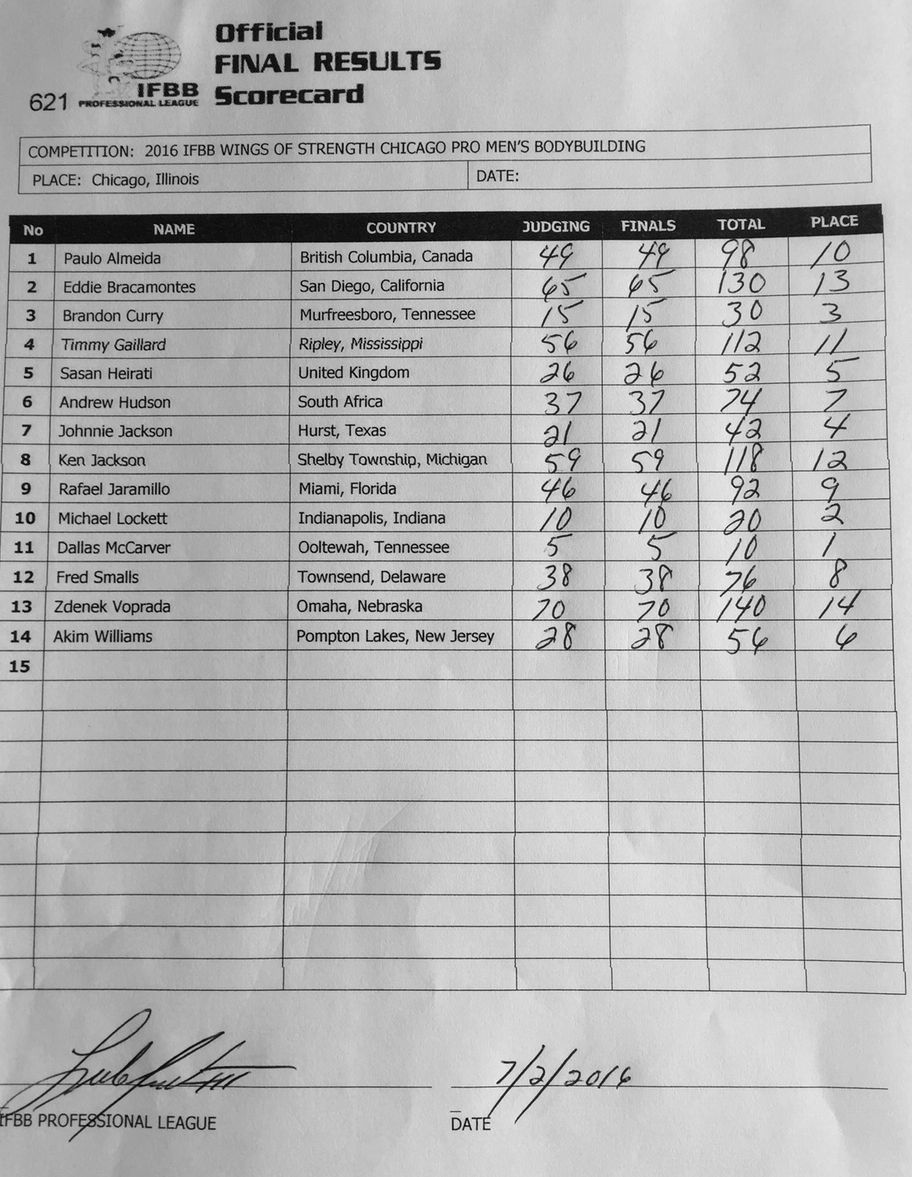 Official
FINAL RESULTS
Scorecard
621
IFBB
PROFESSIONAL LEAGUE
COMPETITION: 2016 IFBB WINGS OF STRENGTH CHICAGO PRO MEN'S BODYBUILDING
PLACE: Chicago, Illinois DATE:
No NAME COUNTRY JUDGING FINALS TOTAL PLACE
1 Paulo Almeida British Columbia, Canada 49 49 98 10
2 Eddie Bracamontes San Diego, California 65 65 130 13
3 Brandon Curry Murfreesboro, Tennessee 15 15 30 3
4 Timmy Gaillard Ripley, Mississippi 56 56 112 11
5 Sasan Heirati United Kingdom 26 26 52 5
6 Andrew Hudson South Africa 37 37 74 7
7 Johnnie Jackson Hurst, Texas 21 21 42 4
8 Ken Jackson Shelby Township, Michigan 59 59 118 12
9 Rafael Jaramillo Miami, Florida 46 46 92 9
10 Michael Lockett Indianapolis, Indiana 10 10 20 2
11 Dallas McCarver Ooltewah, Tennessee 5 5 10 1
12 Fred Smalls Townsend, Delaware 38 38 76 8
13 Zdenek Voprada Omaha, Nebraska 70 70 140 14
14 Akim Williams Pompton Lakes, New Jersey 28 28 56 6
15
7/2/2016
IFBB PROFESSIONAL LEAGUE DATE